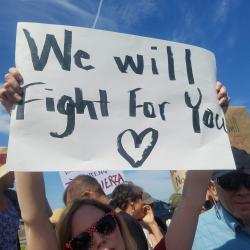 We will
Fight For You
ERZA